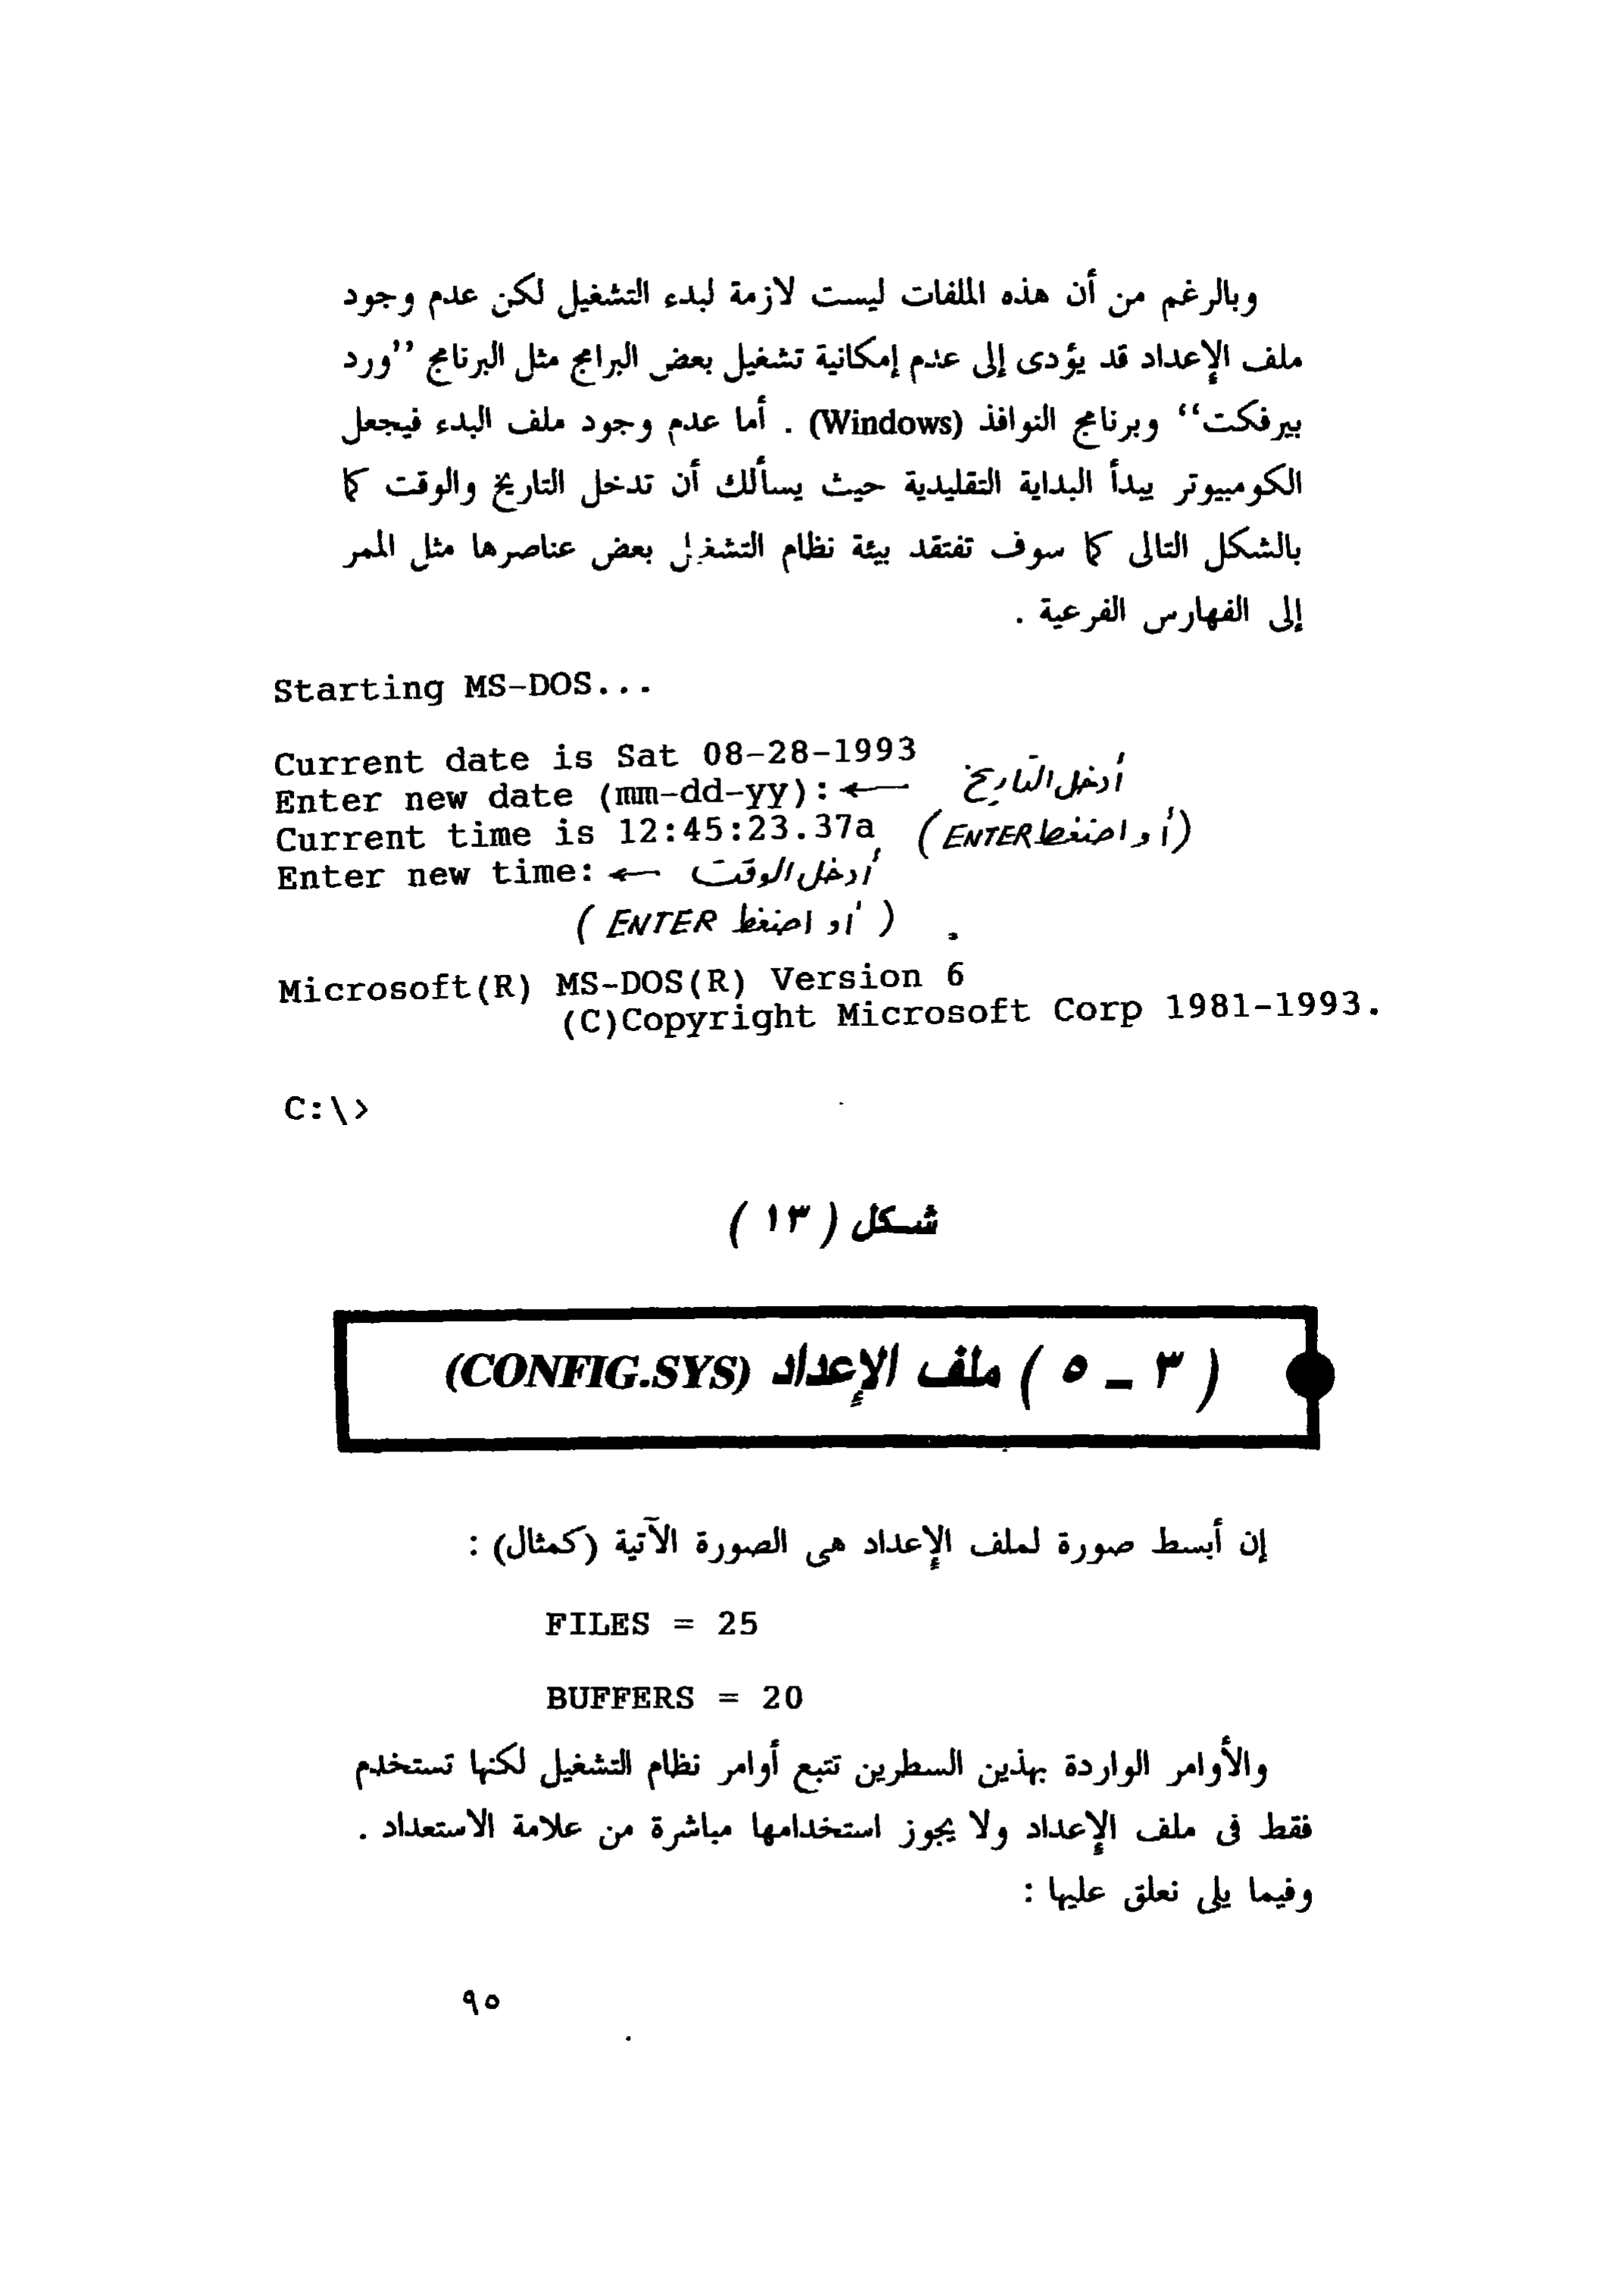 وبالرغم من أن هذه الملفات ليست لازمة لبدء التشغيل لكن عدم وجود
ملف الإعداد قد يؤدى إلى عدم إمكانية تشغيل بعض البرامج مثل البرنامج ’’ورد
بيرفكت‘‘ وبرنامج النوافذ (Windows) . أما عدم وجود ملف البدء فيجعل
الكومبيوتر يبدأ البداية التقليدية حيث يسألك أن تدخل التاريخ والوقت كما
بالشكل التالى كما سوف تفتقد بيئة نظام التشغيل بعض عناصرها مثل الممر
إلى الفهارس الفرعية .
Starting MS-DOS...
Current date is Sat 08-28-1993
Enter new date (mm-dd-yy):← أدخل التاريخ
Current time is 12:45:23.37a (أو اضغط ENTER)
Enter new time:← أدخل الوقت
(أو اضغط ENTER)
Microsoft(R) MS-DOS(R) Version 6
(C)Copyright Microsoft Corp 1981-1993.
C:\>
شكل ( ١٣ )
( ٣ ـ ٥ ) ملف الإعداد (CONFIG.SYS)
إن أبسط صورة لملف الإعداد هى الصورة الآتية (كمثال) :
FILES = 25
BUFFERS = 20
والأوامر الواردة بهذين السطرين تتبع أوامر نظام التشغيل لكنها تستخدم
فقط فى ملف الإعداد ولا يجوز استخدامها مباشرة من علامة الاستعداد .
وفيما يلى نعلق عليها :
٩٥